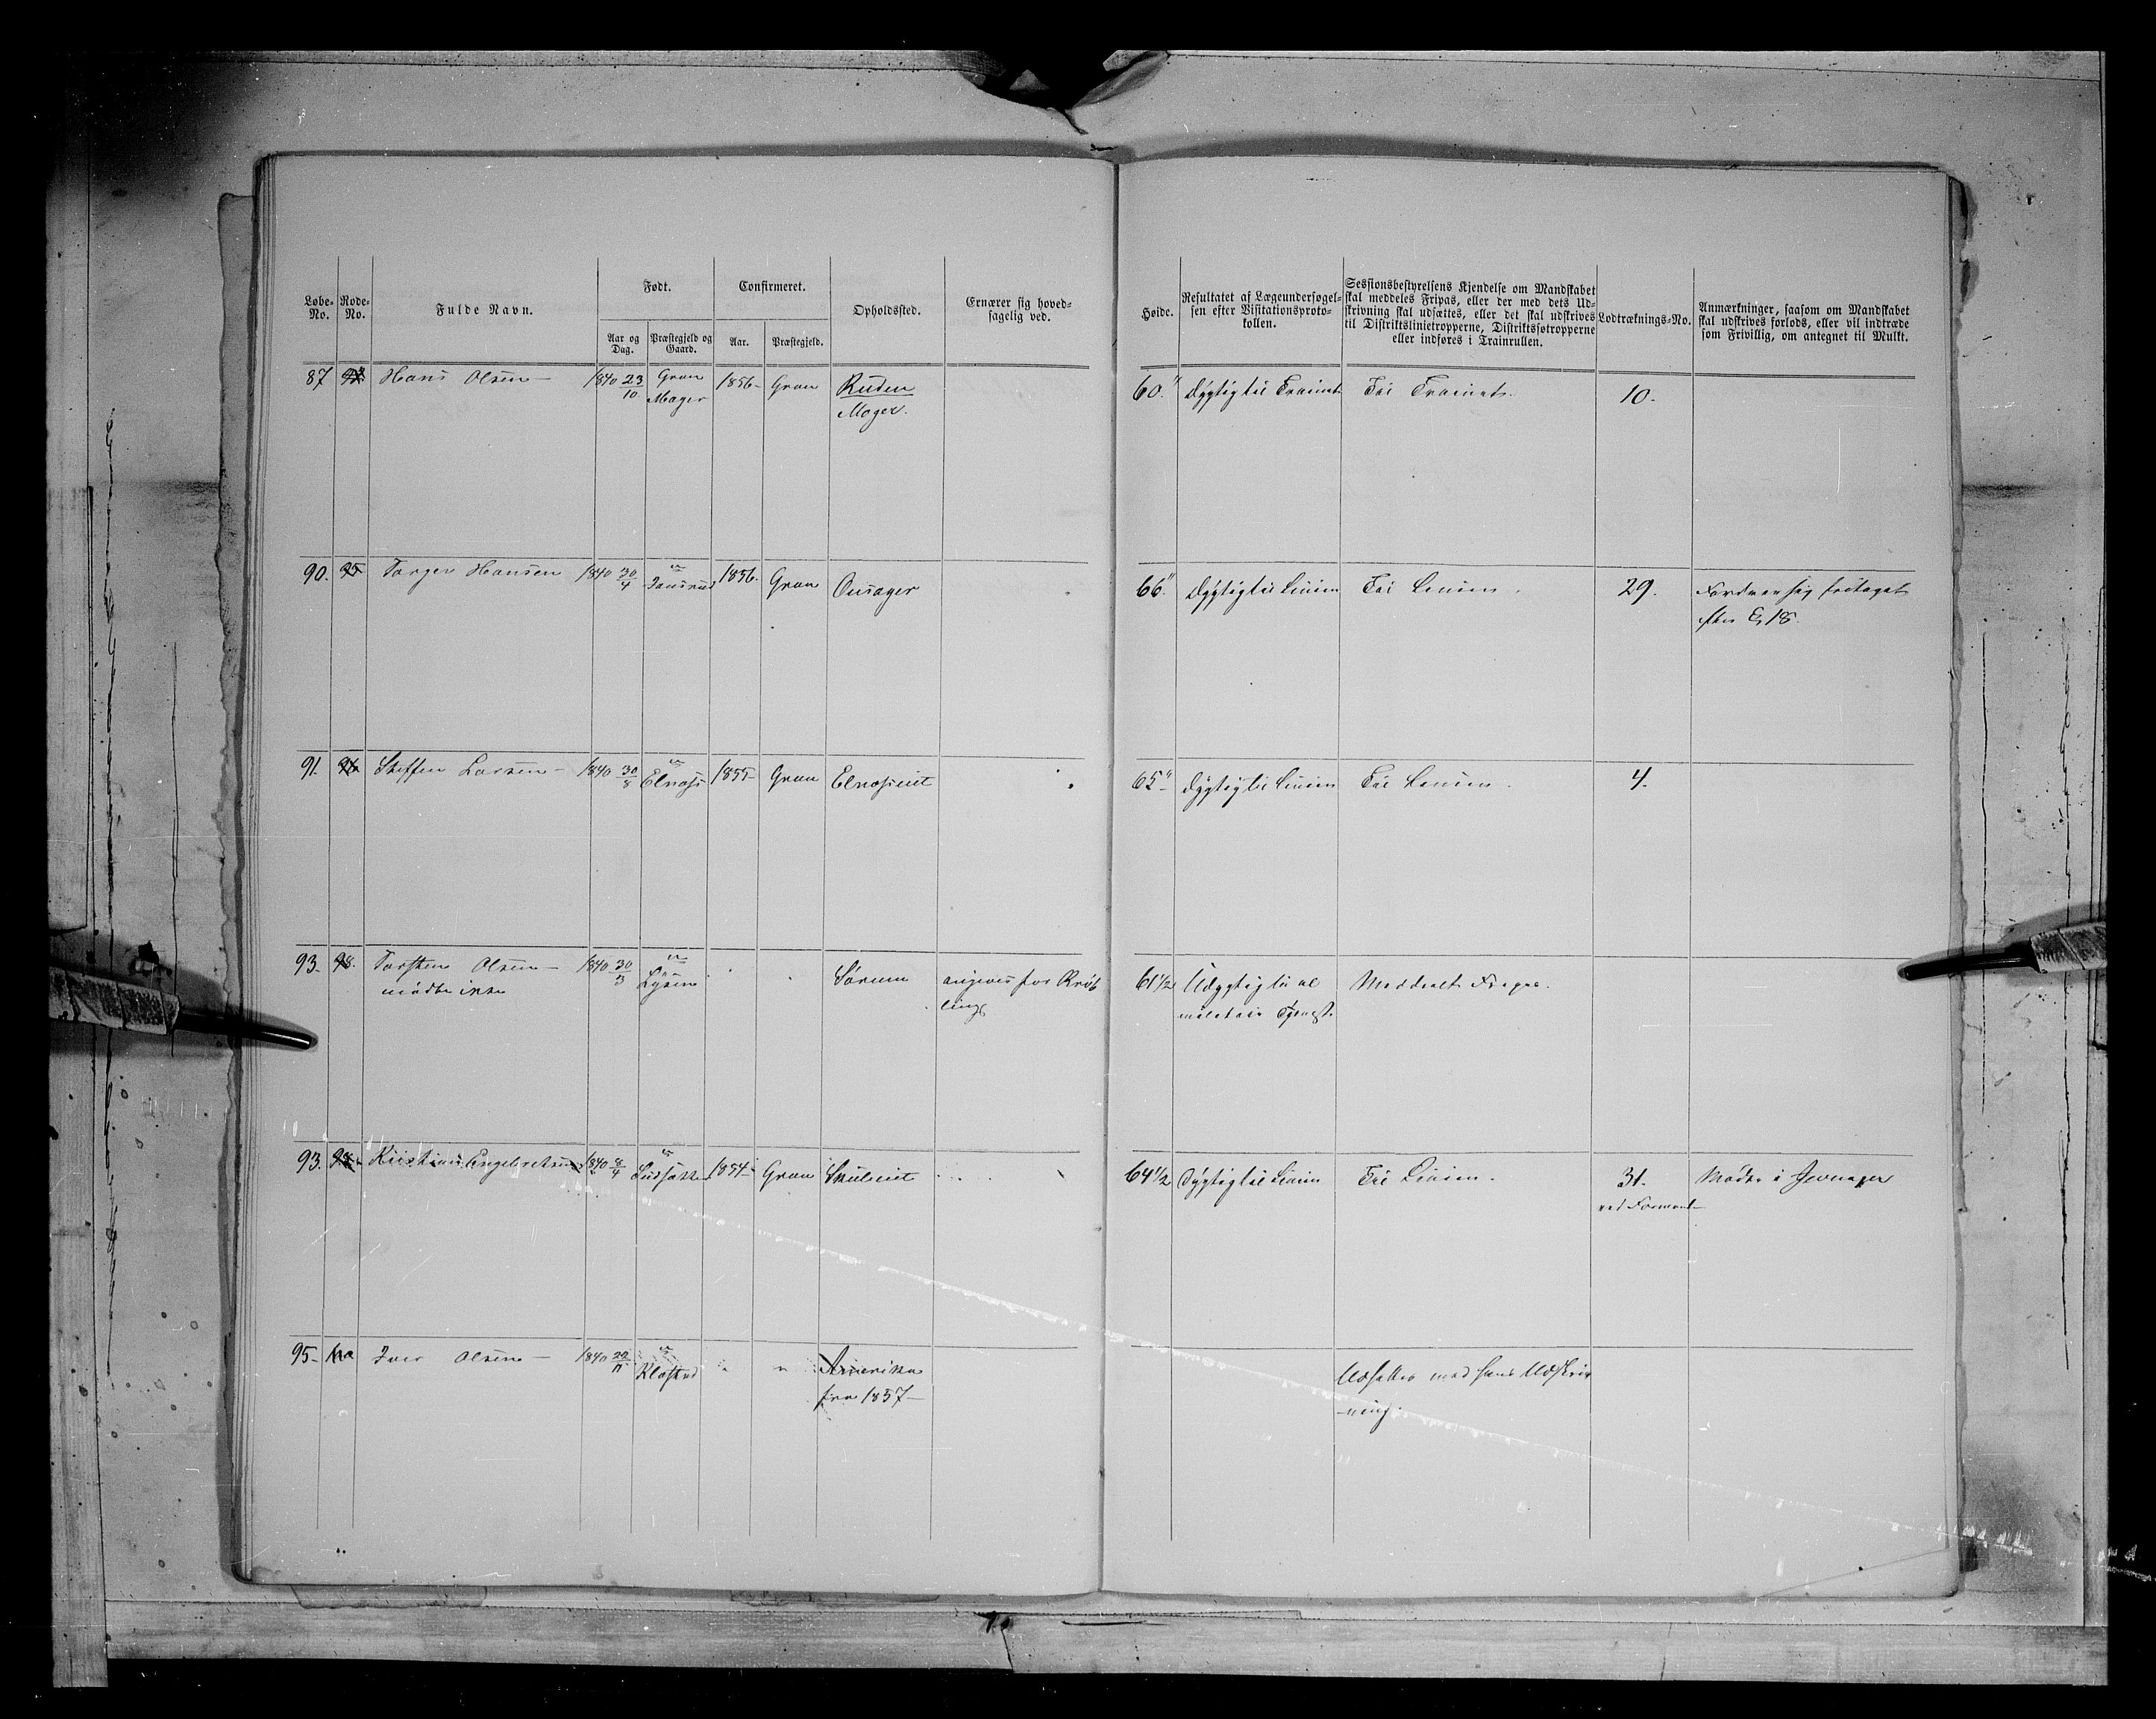 Løbe-No. Rode-No. Fulde Navn. Født. Aar og Dag. Præstegjeld og Gaard. Confirmeret. Aar. Præstegjeld. Opholdssted. Ernærer sig hoved-sagelig ved.
Høide. Resultatet af Lægeundersøgel-sen efter Visitationsproto-kollen. Sessionsbestyrelsens Kjendelse om Mandskabet skal meddeles Fripas, eller der med dets Ud-skrivning skal udsættes, eller det skal udskrives til Distriktslinietropperne, Distriktsføtropperne eller indføres i Trainrullen. Lodtræknings-No. Anmærkninger, saasom om Mandskabet skal udskrives forlods, eller vil indtræde som Frivillig, om antegnet til Mulkt.
87 Hans Olsen - 1840 23/10 Gran Mager 1856 - Gran Ruden
Mager.
60" Dygtig til Trainet Til Trainet. 10.
90. 95 Torger Hansen 1840 30/4 " 1856. Gran Onsager
66" Dygtig til Linien Til Linien. 29. Fordrer sig fritaget
efter § 18.
91. 96 Steffen Larsen - 1840 30/8 " Elnæs 1855 - Gran Elnæseiet
65" Dygtig til Linien Til Linien. 4.
93. 98. Torsten Olsen - 1840 30/3 " Lysen Sørum angives for Krøb
mødte ikke
ling
61 1/2 Udygtig til al Meddeelt Fripas.
militair Tjenest.
93. 98. Kristian Engebretsen 1840 8/4 " 1854 - Gran
64 1/2 Dygtig til Linien Til Linien. 31. Mødte i Jevnager
ved Formand
95 - Iver Olsen - 1840 22/11 " Klæstad " " Amerika
fra 1857 -
Udsættes med hans Udskriv
-ning.